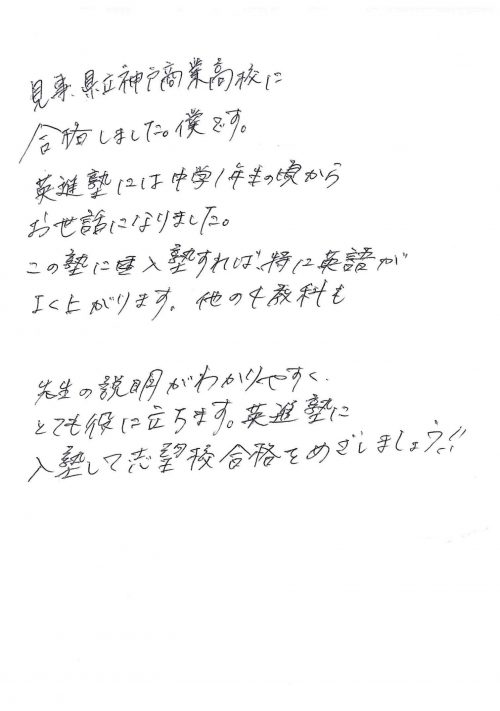 見事、県立神戸商業高校に
合格しました。僕です。
英進塾には中学1年生の頃から
お世話になりました。
この塾に入塾すれば、特に英語が
よく上がります。他の4教科も
先生の説明がわかりやすく、
とても役に立ちます。英進塾に
入塾して志望校合格をめざしましょう!!